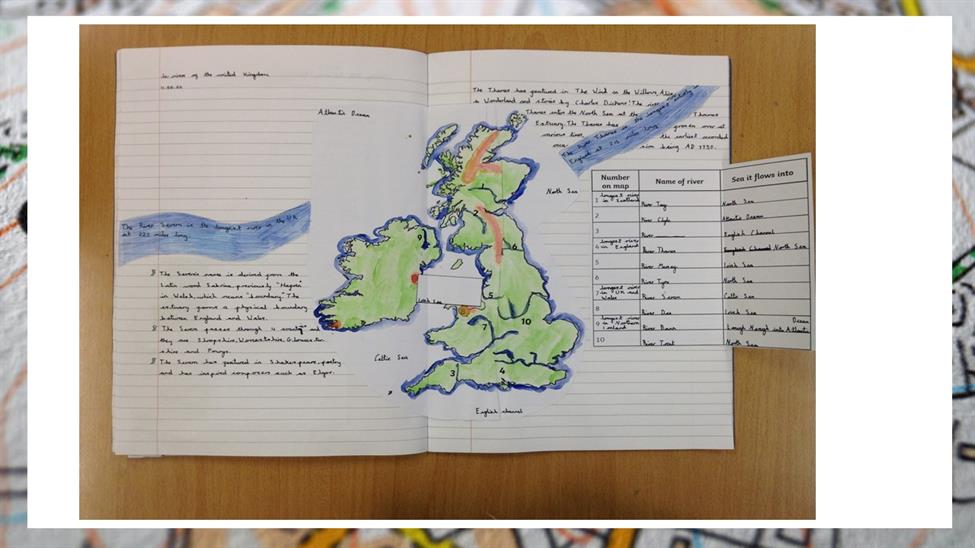 of the united Kingdom
The River Severn is the longest river in the UK
at 220 miles long.
The Severn name is derived from the
Latin word Sabrina, previously "Hafren"
in Welsh, which means "boundary". The
estuary forms a physical boundary
between England and Wales.
The Severn through 4 and
they are Shropshire, Worcestershire, Gloucester-
shire and Powys.
The Severn has featured in Shakespeare, poetry
and has inspired composers such as Elgar.
Atlantic Ocean
North Sea
Irish Sea
Celtic Sea
English channel
6
5
10
7
3
4
The Thames has featured in The Wind in the Willows, Alice
in Wonderland and stories by Charles Dickens! The
Thames enters the North Sea at the Thames
Estuary. The Thames has frozen over at
various times the earliest recorded
being AD
The River Thames is the longest entirely in
England at 215 miles long.
Number on map Name of river Sea it flows into
1 longest river in Scotland River Tay North Sea
2 River Clyde Atlantic Ocean
3 River English Channel
4 longest river in England River Thames North Sea
5 River Mersey Irish Sea
6 River Tyne North Sea
7 longest river in UK and Wales River Severn Celtic Sea
8 River Dee Irish Sea
9 longest river in Northern Ireland River Bann Lough Neagh into Atlantic Ocean
10 River Trent North Sea